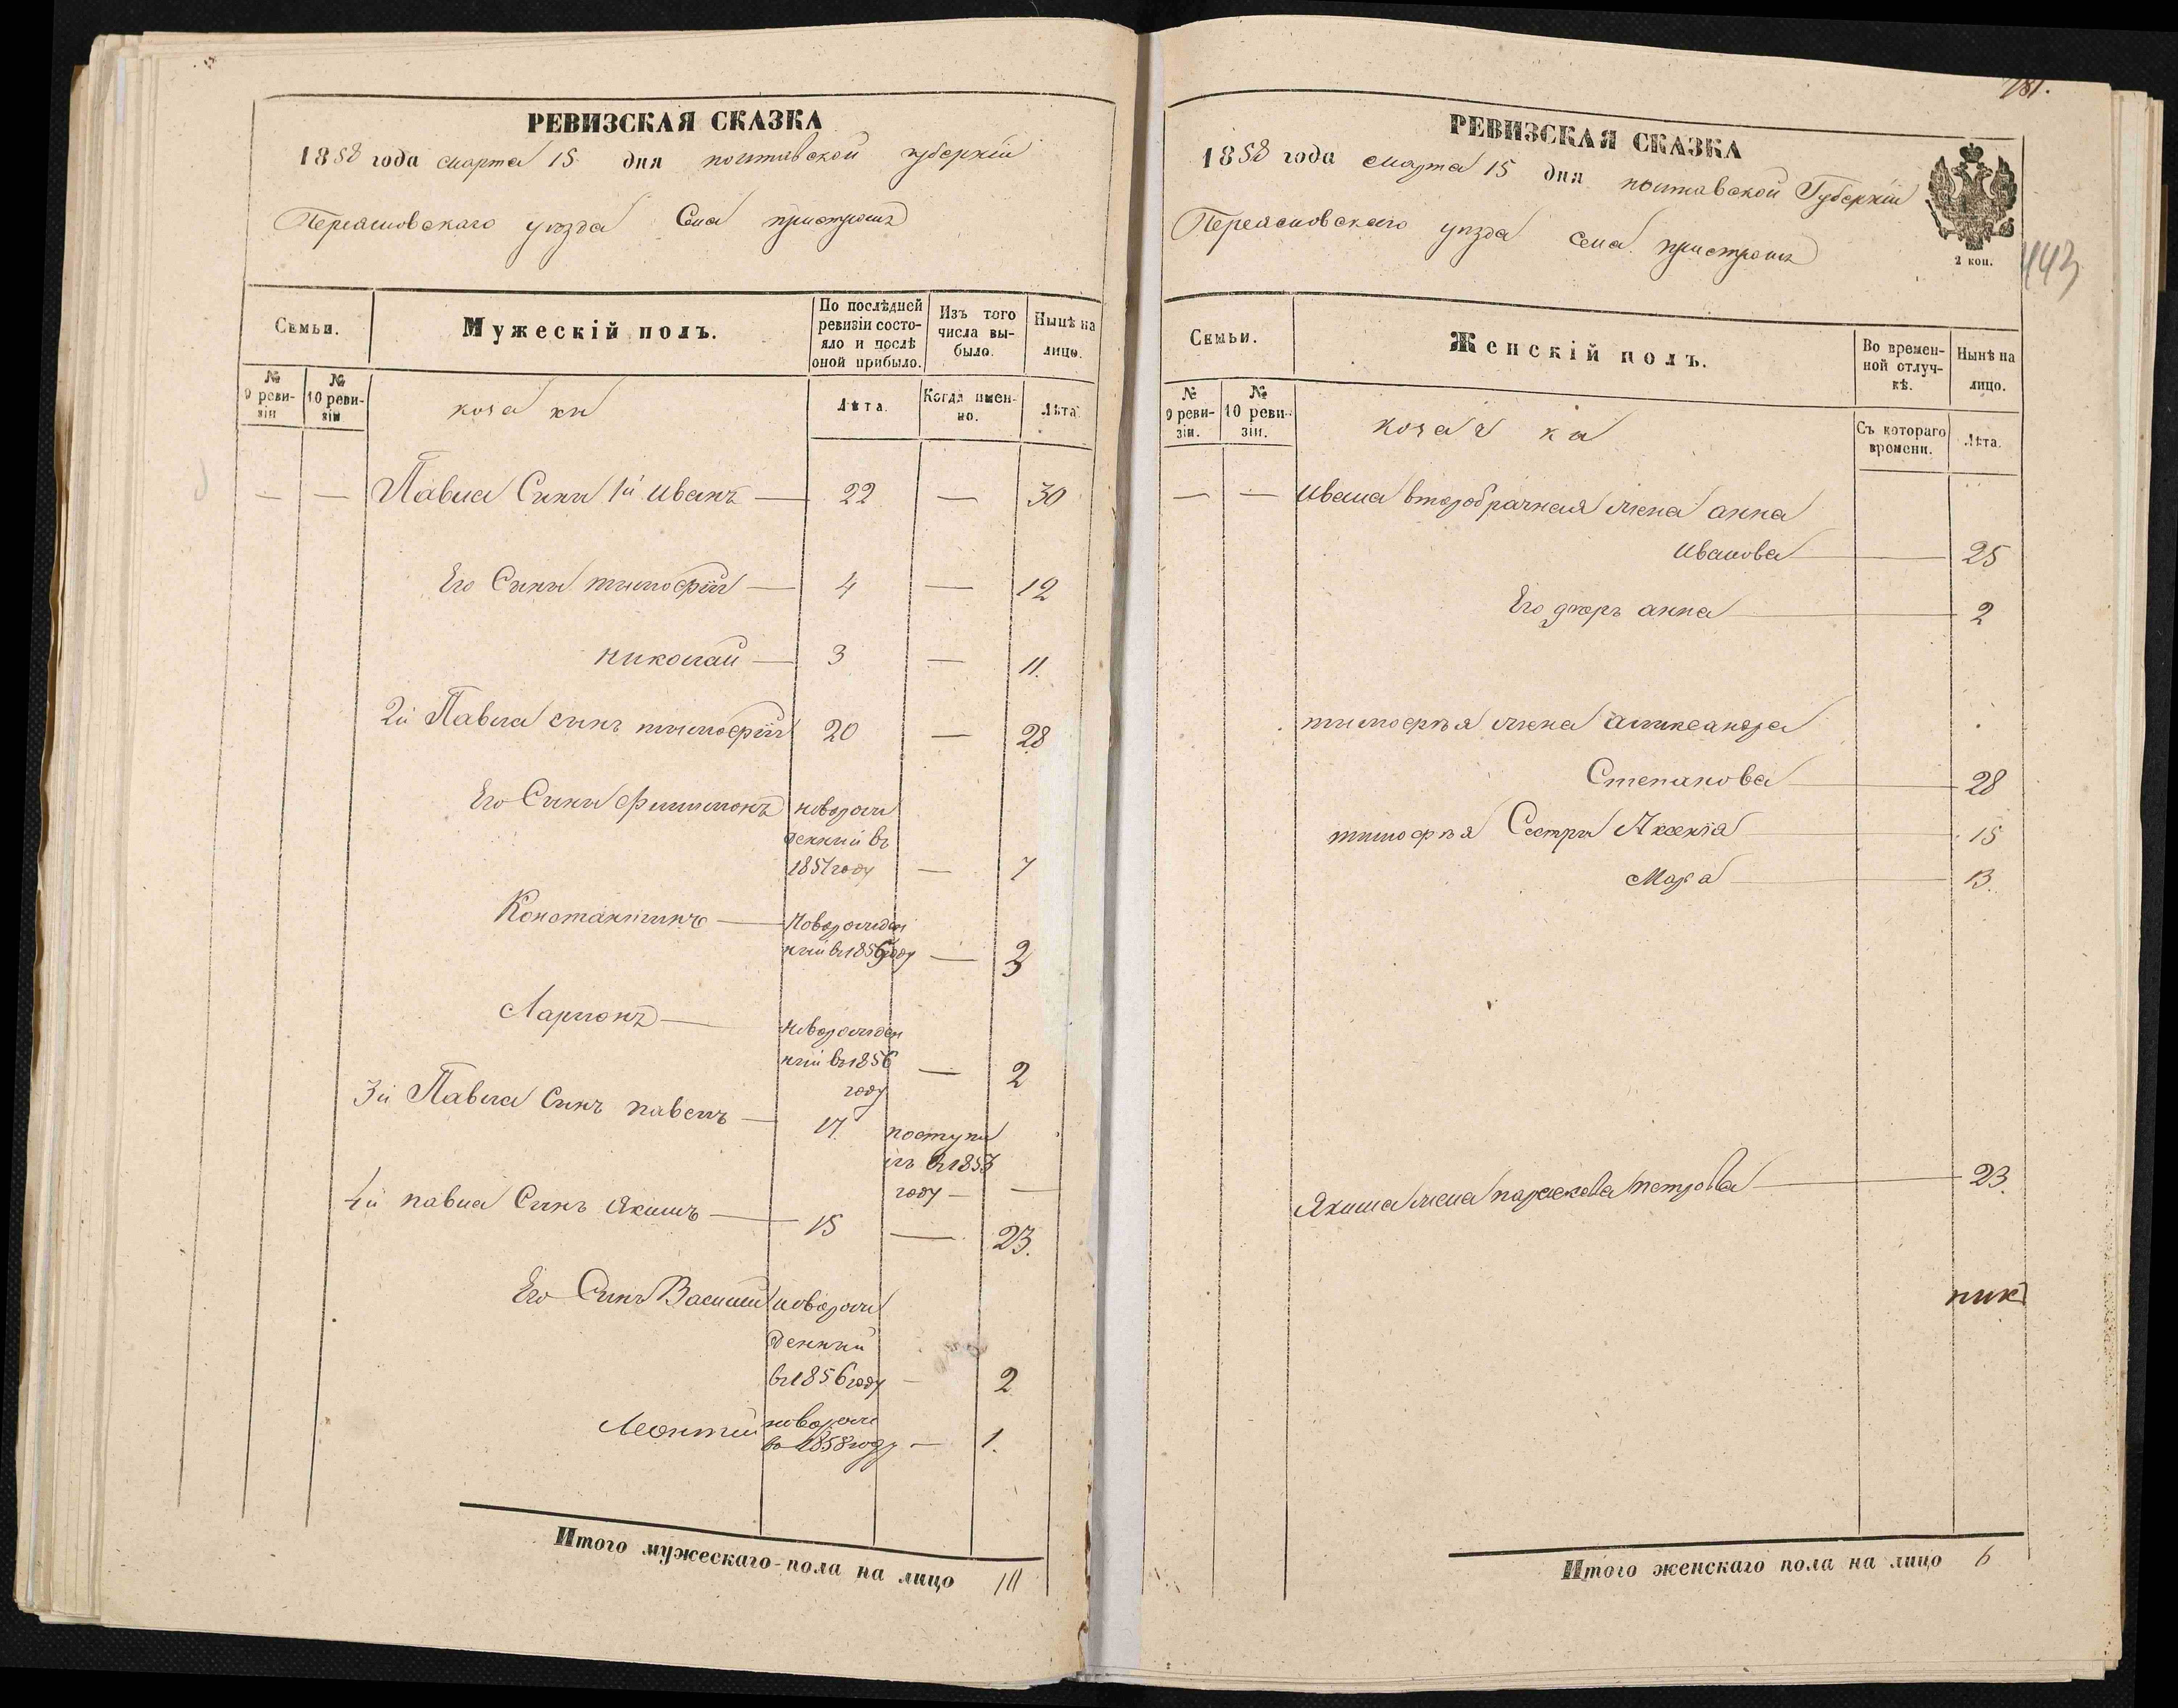 РЕВИЗСКАЯ СКАЗКА
1858 года марта 15 дня полтавской губерніи
Переасловскаго уезда Села пристромъ
Семьи.
Мужескій полъ.
По послѣдней ревизіи состояло и послѣ оной прибыло.
Изъ того числа выбыло.
Нынѣ на лицо.
№ 9 ревизіи
№ 10 ревизіи
козаки
Лѣта.
Когда именно.
Лѣта.
— — Павла Сыны 1й иванъ — 22 — 30
Его Сыны тимофій — 4 — 12
николай — 3 — 11.
2й Павла сынъ тимофій 20 — 28
Его Сыны филимонъ новорож
денный въ
1851 году — 7
Константинъ — Новорожден
ный въ 1856 году — 2
Ларионъ — новорожден
ный въ 1856 — 2
году
3й Павла Сынъ павелъ — 17. поступи
лъ въ 1853
году — —
4й павла Сынъ Якимъ — 15 — 23.
Его Сынъ Василий новорож
денный
въ 1856 году — 2
Леонтий новорож
въ 1858 году — 1.
Итого мужескаго пола на лицо 10
181.
РЕВИЗСКАЯ СКАЗКА
1858 года марта 15 дня полтавской Губерніи
Переасловскаго уезда села пристромъ
2 коп.
443
Семьи.
Женскій полъ.
Во временной отлучкѣ.
Нынѣ на лицо.
№ 9 ревизіи.
№ 10 ревизіи.
козачки
Съ котораго времени.
Лѣта.
— — ивана второбрачная жена анна
иванова — 25
Его дочерь анна — 2
тимофея жена аликсандра
Степанова — 28
тимофея Сестры Аксенія — 15
Мара — 13.
Якима жена параскева петрова — 23.
пик
Итого женскаго пола на лицо 6